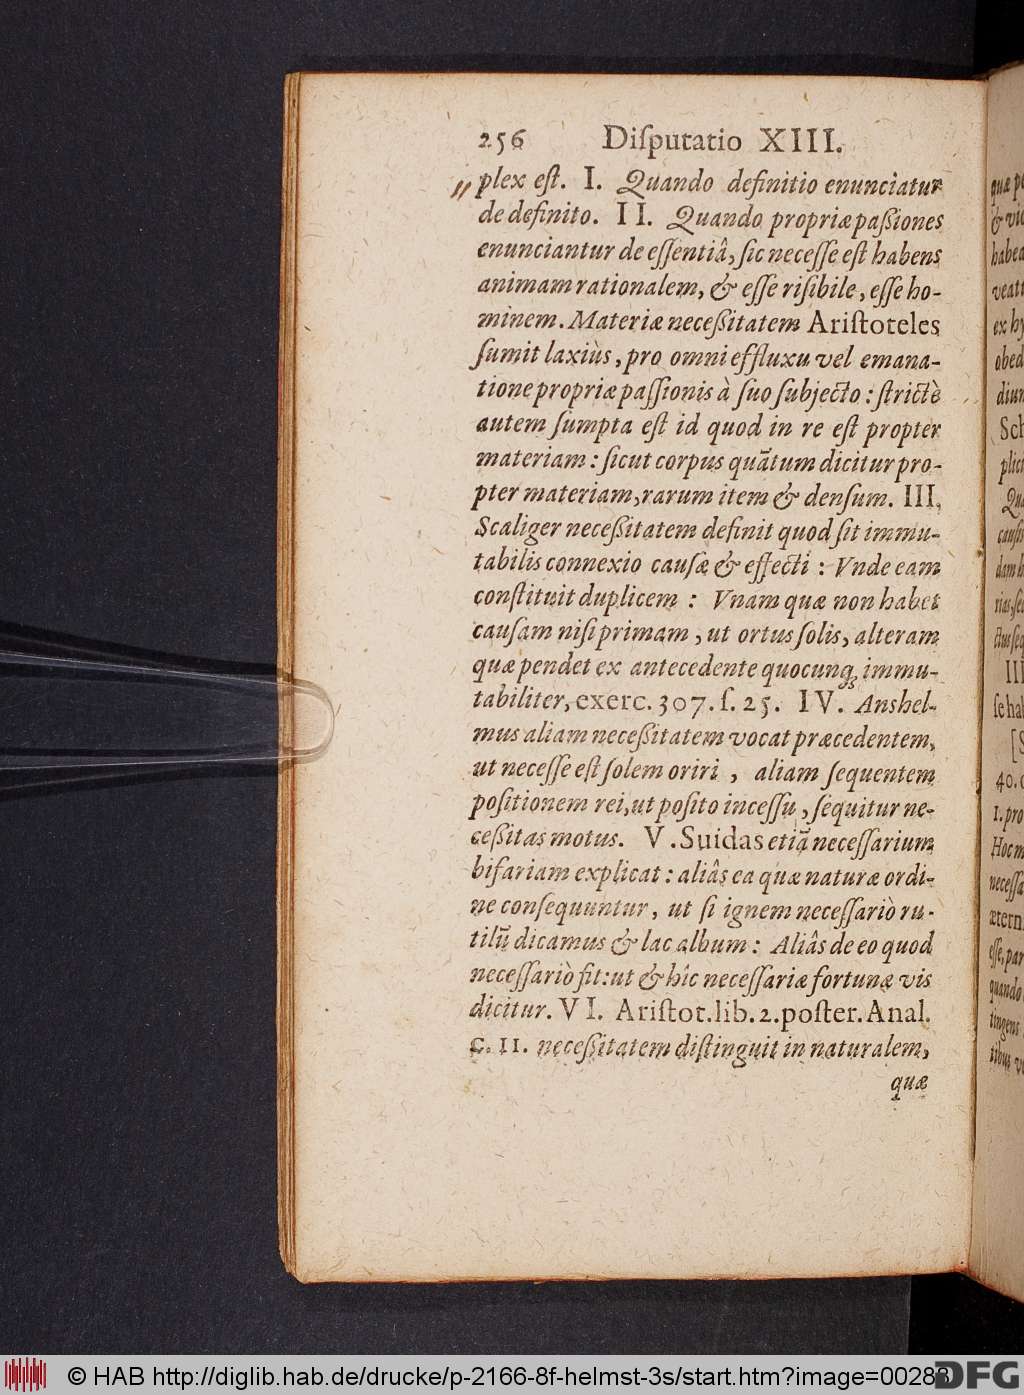 256 Diſputatio XIII.
plex eſt. I. Quando definitio enunciatur
de definito. II. Quando propriæ paßiones
enunciantur de eſſentiâ, ſic neceſſe eſt habens
animam rationalem, & eſſe riſibile, eſſe ho-
minem. Materiæ neceßitatem Ariſtoteles
ſumit laxiùs, pro omni effluxu vel emana-
tione propriæ paſſionis à ſuo ſubjecto : ſtrictè
autem ſumpta eſt id quod in re eſt propter
materiam : ſicut corpus quātum dicitur pro-
pter materiam, rarum item & denſum. III.
Scaliger neceßitatem definit quod ſit immu-
tabilis connexio cauſæ & effecti : Vnde eam
conſtituit duplicem : Vnam quæ non habet
cauſam niſi primam, ut ortus ſolis, alteram
quæ pendet ex antecedente quocunq; immu-
tabiliter, exerc. 307. ſ. 25. IV. Anshel-
mus aliam neceßitatem vocat præcedentem,
ut neceſſe eſt ſolem oriri, aliam ſequentem
poſitionem rei, ut poſito inceſſu, ſequitur ne-
ceßitas motus. V. Suidas etiā neceſſarium
bifariam explicat : aliâs ea quæ naturæ ordi-
ne conſequuntur, ut ſi ignem neceſſariò ru-
tilū dicamus & lac album : Aliâs de eo quod
neceſſariò fit: ut & hîc neceſſariæ fortunæ vis
dicitur. VI. Ariſtot. lib. 2. poſter. Anal.
c. 11. neceßitatem diſtinguit in naturalem,
quæ
quæ
habea
ex hy
obed
diun
Sch
plici
cauſis
III
ſe hab
40.
1. pro
Hoc m
neceſſa
ætern
eſſe, par
quando
tingens
tibus
© HAB http://diglib.hab.de/drucke/p-2166-8f-helmst-3s/start.htm?image=00288
DFG